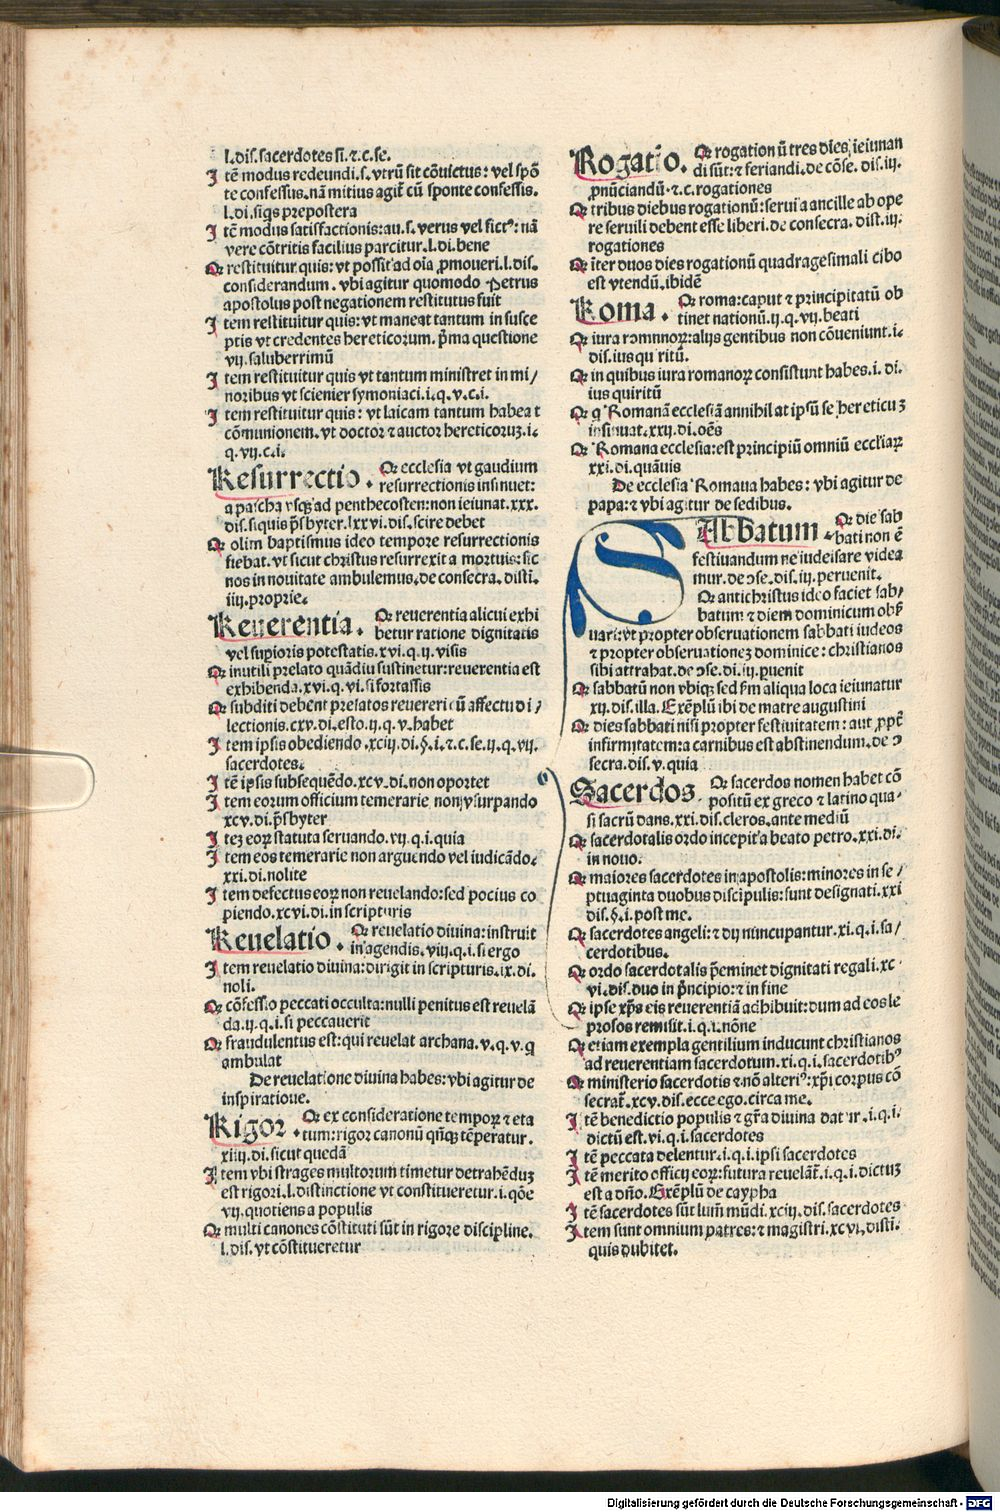 l.dis.sacerdotes si.⁊.c.se.
Itē modus redeundi.s.vtrū sit cōuictus: vel spō
te confessus.nā mitius agit̄ cū sponte confessis.
l.di.siqs prepostera
Itē modus satisfactionis:au.s.verus vel fictꝰ: nā
vere cōtritis facilius parcitur.l.di.bene
Qꝛ restituitur quis: vt possit ad oīa ꝓmoueri.l.dis.
considerandum. vbi agitur quomodo Petrus
apostolus post negationem restitutus fuit
Item restituitur quis: vt maneat tantum in susce
ptis vt credentes hereticorum. p̄ma questione
vij.saluberrimū
Item restituitur quis vt tantum ministret in mi/
noribus vt scienter symoniaci.i.q.v.c.i.
Item restituitur quis: vt laicam tantum habeat
cōmunionem.vt doctor ⁊ auctor hereticoruꝫ.i.
q.vij.c.i.
Resurrectio. Qꝛ ecclesia vt gaudium
resurrectionis insinuet:
a pascha vsqꝫ ad penthecosten:non ieiunat.xxx.
dis.siquis p̄sbyter.lxxvi.dis.scire debet
Qꝛ olim baptismus ideo tempore resurrectionis
fiebat.vt sicut christus resurrexit a mortuis:sic
nos in nouitate ambulemus.de consecra.disti.
iiij.proprie.
Reuerentia. Qꝛ reuerentia alicui exhi
betur ratione dignitatis
vel sup̄ioris potestatis.xvi.q.ij.visis
Qꝛ inutili prelato quādiu sustinetur:reuerentia est
exhibenda.xvi.q.vi.si fortassis
Qꝛ subditi debent prelatos reuereri cū affectu di/
lectionis.cxv.di.esto.ij.q.v.habet
Item ipsis obediendo.xciij.di.§.i.⁊.c.se.ij.q.vij.
sacerdotes.
Itē ipsis subsequēdo.xcv.di.non oportet
Item eorum officium temerarie non vsurpando
xcv.di.p̄sbyter
Iteꝫ eoꝝ statuta seruando.vij.q.i.quia
Item eos temerarie non arguendo vel iudicādo.
xxi.di.nolite
Item defectus eoꝝ non reuelando:sed pocius co
piendo.xcvi.di.in scripturis
Reuelatio. Qꝛ reuelatio diuina:instruit
in agendis.viij.q.i.si ergo
Item reuelatio diuina:dirigit in scripturis.ix.di.
noli.
Qꝛ cōfessio peccati occulta:nulli penitus est reuelā
da.ij.q.i.si peccauerit
Qꝛ fraudulentus est:qui reuelat archana.v.q.v.q
ambulat
De reuelatione diuina habes:vbi agitur de
inspiratione.
Rigor. Qꝛ ex consideratione tempoꝝ ⁊ eta
tum:rigor canonū qn̄qꝫ tēperatur.
xliij.di.sicut quedā
Item vbi strages multorum timetur detrahēduꝫ
est rigori.l.distinctione vt constitueretur.i.qōe
vij.quotiens a populis
Qꝛ multi canones cōstituti sūt in rigore discipline.
l.dis.vt cōstitueretur
Rogatio. Qꝛ rogationū tres dies ieiunan
di sūt:⁊ feriandi.de cōse. dis.iij.
ꝓnūciandū.⁊.c.rogationes
Qꝛ tribus diebus rogationū:serui a ancille ab ope
re seruili debent esse liberi.de consecra. dist.iij.
rogationes
Qꝛ īter duos dies rogationū quadragesimali cibo
est vtendū.ibidē
Roma. Qꝛ roma:caput ⁊ principitatū ob
tinet nationū.ij.q.vij.beati
Qꝛ iura romnnoꝝ:alijs gentibus non cōueniunt.i.
dis.ius quiritū.
Qꝛ in quibus iura romanoꝝ consistunt habes.i.di.
ius quiritū
Qꝛ q̄ Romanā ecclesiā annihilat ipsū se hereticuꝫ
insinuat.xxij.di.oēs
Qꝛ Romana ecclesia:est principiū omniū eccliaꝝ
xxi.di.quāuis
De ecclesia Romana habes: vbi agitur de
papa:⁊ vbi agitur de sedibus.
SAbbatum. Qꝛ die sab
bati non ē
festiuandum ne iudeisare videa
mur.de ↄse.dis.iij.peruenit.
Qꝛ antichristus ideo faciet sab/
batum ⁊ diem dominicum obs̄
uari:vt propter obseruationem sabbati iudeos
⁊ propter obseruationeꝫ dominice: christianos
sibi attrahat.de ↄse.di.iij.ꝑuenit
Qꝛ sabbatū non vbiqꝫ sed fm̄ aliqua loca ieiunatur
xij.dis.illa. Exēplū ibi de matre augustini
Qꝛ dies sabbati nisi propter festiuitatem: aut ꝓpt̄
infirmitatem:a carnibus est abstinendum.de ↄ
secra.dis.v.quia
Sacerdos Qꝛ sacerdos nomen habet cō
positū ex greco ⁊ latino qua/
si sacrū dans.xxi.dis.cleros.ante mediū
Qꝛ sacerdotalis ordo incepit a beato petro.xxi.di.
in nouo.
Qꝛ maiores sacerdotes in apostolis:minores in se/
ptuaginta duobus discipulis:sunt designati.xxi
dis.§.i.post me.
Qꝛ sacerdotes angeli:⁊ dij nuncupantur.xi.q.i.sa/
cerdotibus.
Qꝛ ordo sacerdotalis p̄eminet dignitati regali.xc
vi.dis.duo in p̄ncipio:⁊ in fine
Qꝛ ipse xp̄s eis reuerentiā adhibuit:dum ad eos le
prosos remisit.i.q.i.nōne
Qꝛ etiam exempla gentilium inducunt christianos
ad reuerentiam sacerdotum.xi.q.i.sacerdotibꝰ
Qꝛ ministerio sacerdotis ⁊ nō alteriꝰ:xp̄i corpus cō
secrat̄.xcv.dis.ecce ego.circa me.
Itē benedictio populis ⁊ gr̄a diuina datur.i.q.i.
dictū est.vi.q.i.sacerdotes
Itē peccata delentur.i.q.i.ipsi sacerdotes
Itē merito officij eoꝝ:futura reuelāt̄.i.q.i.dictuꝫ
est a dn̄o. Exēplū de caypha
Itē sacerdotes sūt lum̄ mūdi.xciij.dis.sacerdotes
Item sunt omnium patres:⁊ magistri.xcvi.disti.
quis dubitet.
Digitalisierung gefördert durch die Deutsche Forschungsgemeinschaft - DFG